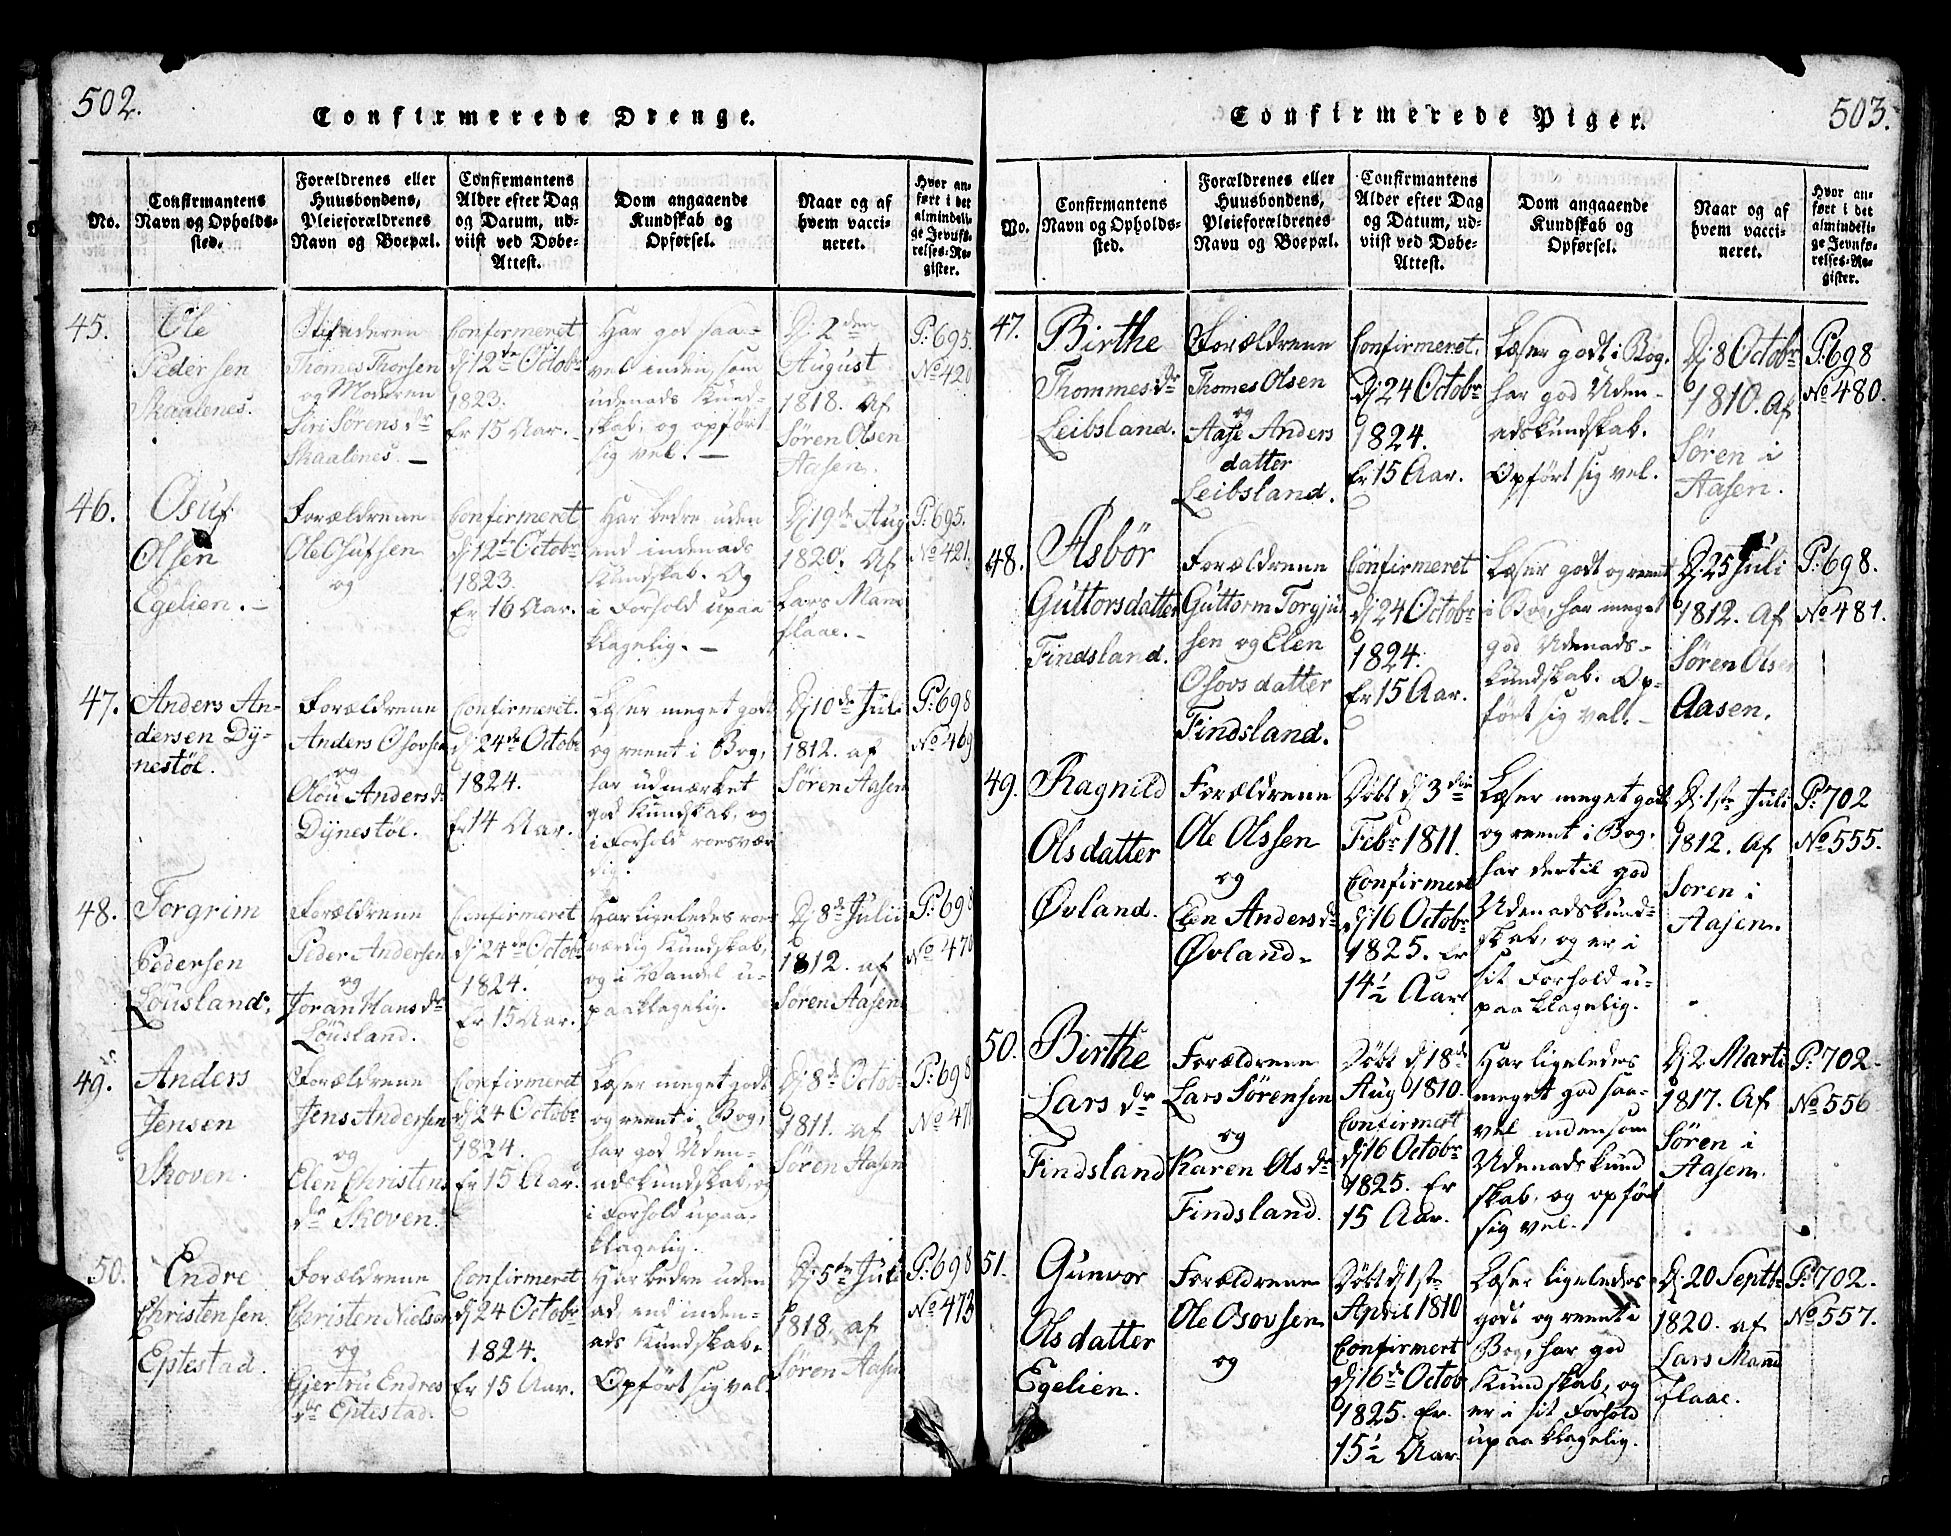 502.
Confirmerede Drenge.
No.
Confirmantens
Navn og Opholds-
sted.
Forældrenes eller
Huusbondens,
Pleieforældrenes
Navn og Boepæl.
Confirmantens
Alder efter Dag
og Datum, ud-
viist ved Døbe-
Attest.
Dom angaaende
Kundskab og
Opførsel.
Naar og af
hvem vacci-
neret.
Hvor an-
ført i det
almindeli-
ge Jevnfø-
relses-Re-
gister.
45.
Ole
Pedersen
Skaalenes.
Stifaderen
Thomes Thorsen
og Moderen
Siri Sørens dr
Skaalenes. -
Confirmeret
dj 12te Octobr
1823.
Er 15 Aar. -
Har god saa-
vel inden, som
udenads Kund-
skab, og opført
sig vel. -
Dj 2den
August
1818. Af
Søren Olsen
Aasen.
P: 695.
No 420
46.
Osuf
Olsen
Egelien. -
Forældrene
Ole Osufsen
og
Confirmeret
dj 12te Octobr
1823.
Er 16 Aar.
Har bedre uden
end indenads
Kundskab. Og
i Forhold upaa
klagelig. -
Dj 19de Aug
1820. Af
Lars Mann
flaae. -
P: 695.
No 421.
47.
Anders An-
dersen Dÿ-
nestøl.
Forældrene
Anders Osovsen
og
Alou Anders dr
Dÿnestøl.
Confirmeret.
dj 24de Octobr
1824.
Er 14 Aar.
Læser meget godt
og reent i Bog,
har udmærket
god Kundskab, og
i Forhold roesvær
dig.
Dj 10de Juli
1812. af
Søren Aasen
P: 698
No 469
48.
Torgrim
Pedersen
Lousland.
Forældrene
Peder Andersen
og
Joran Hans dr
Lousland.
Confirmeret
dj 24de Octobr
1824.
Er 15 Aar.
Har ligeledes roes
værdig Kundskab,
og i Vandel u-
paaklagelig.
Dj 8de Julii
1812. af
Søren Aasen
P: 698
No 470
49.
Anders
Jensen
Skoven.
Forældrene
Jens Andersen
og
Elen Christens
dr Skoven.
Confirmeret
dj 24 Octobr
1824.
Er 15 Aar.
Læser meget godt
og reent i Bog,
har god Uden-
adskundskab, og
i Forhold upaa-
klagelig.
Dj 8de Octobr
1811. af
Søren Aasen
P: 698
No 471
50.
Endre
Christensen
Eptestad.
Forældrene
Christen Nielsen
og
Gjertru Endres
dr Eptestad.
Confirmeret
dj 24 Octobr
1824.
Er 15 Aar.
Har bedre uden
ad end inden-
ads Kundskab.
Opført sig vel
Dj 5te Juli
1818. af
Søren Aasen
P: 698
No 473
503.
Confirmerede Piger.
No.
Confirmantens
Navn og Opholds-
sted.
Forældrenes eller
Huusbondens,
Pleieforældrenes
Navn og Boepæl.
Confirmantens
Alder efter Dag
og Datum, ud-
viist ved Døbe-
Attest.
Dom angaaende
Kundskab og
Opførsel.
Naar og af
hvem vacci-
neret.
Hvor an-
ført i det
almindeli-
ge Jevnfø-
relses-Re-
gister.
47.
Birthe
Thommes dr
Leibsland.
Forældrene
Thomes Olsen
og
Aase Anders
datter
Leibsland.
Confirmeret.
dj 24 Octobr
1824.
Er 15 Aar.
Læser godt i Bog.
har god Uden-
adskundskab.
Opført sig vel.
Dj 8 Octobr
1810. Af
Søren i
Aasen.
P: 698
No 480.
48.
Asbör
Guttorsdatter
Findsland.
Forældrene
Guttorm Torgju
sen og Elen
Osovs datter
Findsland.
Confirmeret
dj 24 Octobr
1824.
Er 15 Aar.
Læser godt og reent
i Bog, har meget
god Udenads-
kundskab. Op-
ført sig vel. -
Dj 25 Juli
1812. Af
Søren Olsen
Aasen.
P: 698.
No 481.
49.
Ragnild
Olsdatter
Øvland.
Forældrene
Ole Olssen
og
Elen Anders dr
Øvland.
Døbt dj 3die
Febr 1811.
Confirmert
dj 16 Octobr
1825. Er
14½ Aar
Læser meget godt
og reent i Bog.
har dertil god
Udenadskund-
skab, og er i
sit Forhold u-
paaklagelig.
Dj 1ste Juli
1812. Af
Soren i
Aasen.
P: 702
No 555.
50.
Birthe
Lars dr
Findsland
Forældrene
Lars Sörensen
og
Karen Ols dr
Findsland.
Døbt dj 18de
Aug 1810.
Confirmert
dj 16 Octobr
1825. Er
15 Aar.
Har ligeledes
meget god saa-
vel inden som
Udenadskund
skab, og opført
sig vel.
Dj 2 Marti
1817. Af
Søren i
Aasen.
P: 702.
No 556
51.
Gunvor
Olsdatter
Egelien.
Forældrene
Ole Osovsen
og
Døbt dj 1ste
April 1810
Confirmert
dj 16de Octob
1825. Er
15½ Aar.
Læser ligeledes
godt og reent i
Bog, har god
Kundskab, og
er i sit Forhold
upaaklagelig.
Dj 20 Septbr
1820. af
Lars Mann
flaae.
P: 702.
No 557.